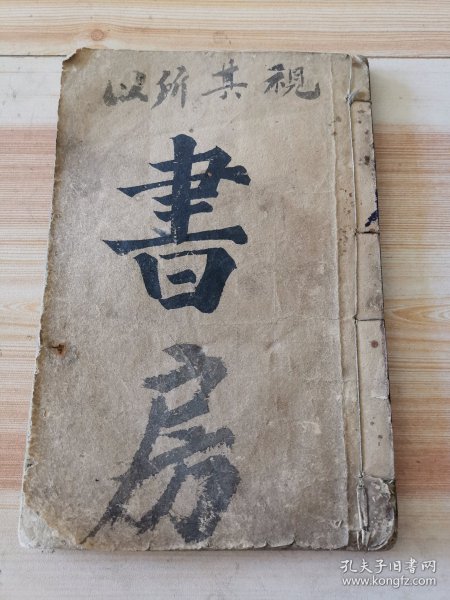 視其所以
書房
孔夫子旧书网
www.kongfz.com